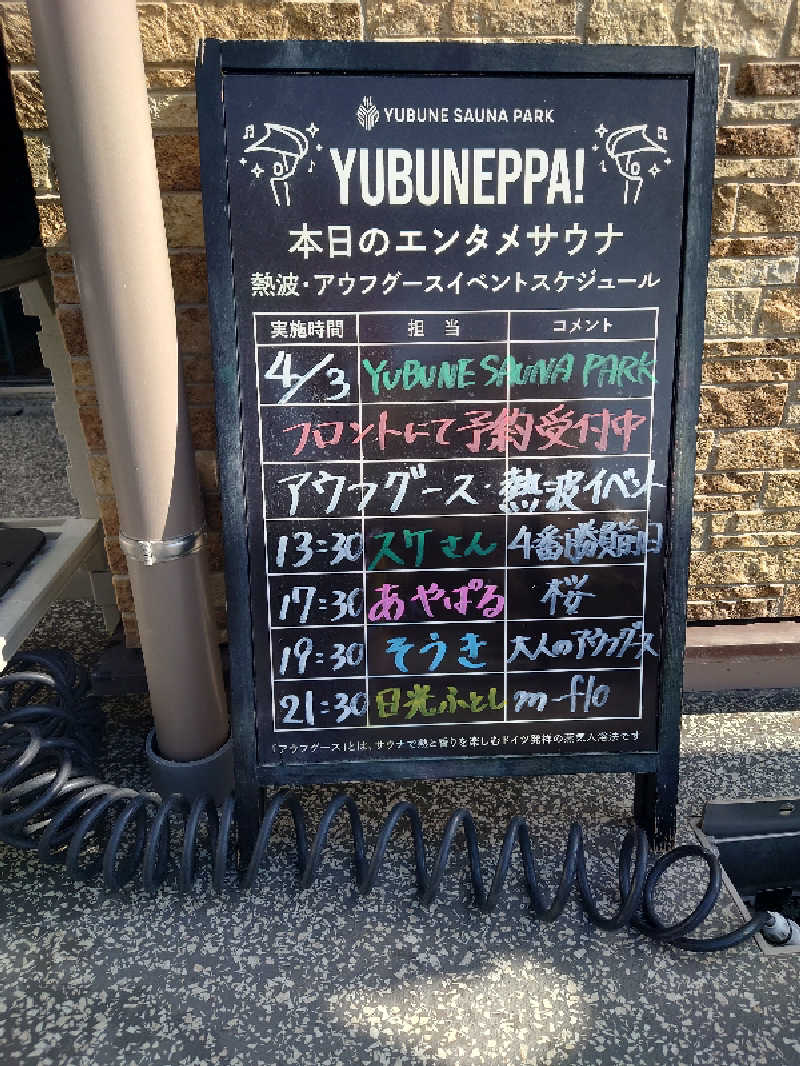 YUBUNE SAUNA PARK
YUBUNEPPA!
本日のエンタメサウナ
熱波・アウフグースイベントスケジュール
実施時間 担当 コメント
4/3 YUBUNE SAUNA PARK
フロントにて予約受付中
アウフグース・熱波イベント
13:30 スケさん 4番勝負前日
17:30 あやぱる 桜
19:30 そうき 大人のアウフグース
21:30 日光ふとし m-flo
「アウフグース」とは、サウナで熱と香りを楽しむドイツ発祥の蒸気入浴法です